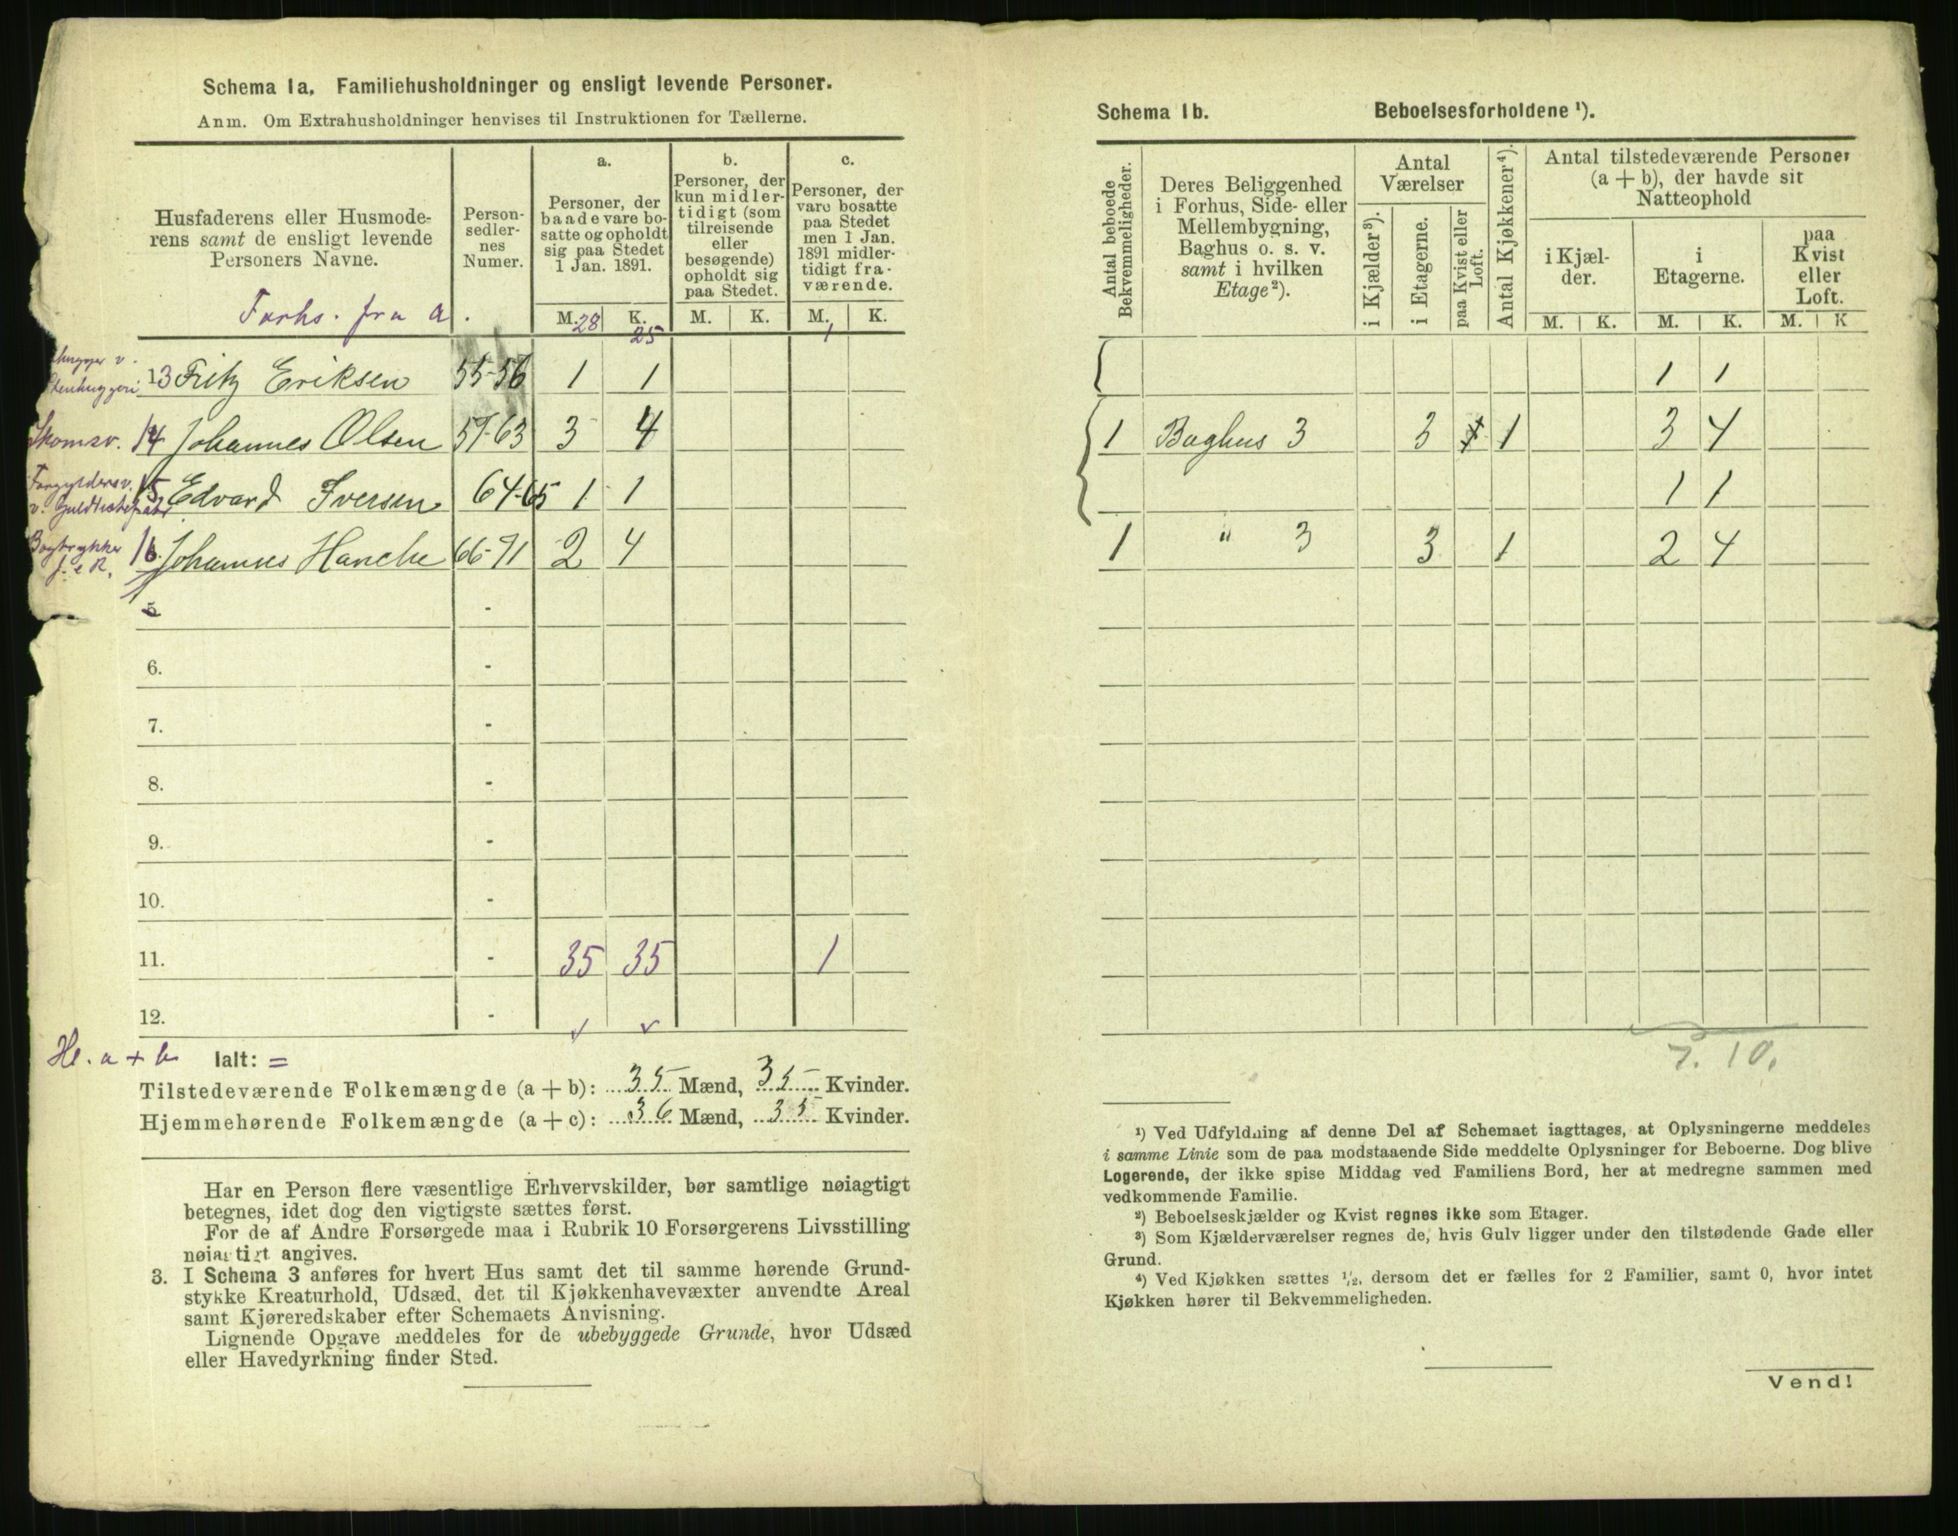 Schema 1a. Familiehusholdninger og ensligt levende Personer.
Anm. Om Extrahusholdninger henvises til Instruktionen for Tællerne.
Husfaderens eller Husmode-
rens samt de ensligt levende
Personers Navne.
Forhs. fra A.
Person-
sedler-
nes
Numer.
a.
Personer, der
baade vare bo-
satte og opholdt
sig paa Stedet
1 Jan. 1891.
b.
Personer, der
kun midler-
tidigt (som
tilreisende
eller
besøgende)
opholdt sig
paa Stedet.
c.
Personer, der
vare bosatte
paa Stedet
men 1 Jan.
1891 midler-
tidigt fra-
værende.
M. K. M. K. M. K.
28 25 1
13 Fritz Eriksen 55-56 1 1
Stenhuggeri
Skomsv. 14 Johannes Olsen 57-63 3 4
Forgyldersv. 15 Edvard Iversen 64-65 1 1
Bogtrykker 16. Johannes Hanche 66-71 2 4
5 -
6. -
7. -
8. -
9. -
10. -
11. - 35 35 1
12. -
Hl. a + b Ialt: =
Tilstedeværende Folkemængde (a + b): 35 Mænd, 35 Kvinder.
Hjemmehørende Folkemængde (a + c): 36 Mænd, 35 Kvinder.
Har en Person flere væsentlige Erhvervskilder, bør samtlige nøiagtigt
betegnes, idet dog den vigtigste sættes først.
For de af Andre Forsørgede maa i Rubrik 10 Forsørgerens Livsstilling
nøiagtigt angives.
3. I Schema 3 anføres for hvert Hus samt det til samme hørende Grund-
stykke Kreaturhold, Udsæd, det til Kjøkkenhavevæxter anvendte Areal
samt Kjøreredskaber efter Schemaets Anvisning.
Lignende Opgave meddeles for de ubebyggede Grunde, hvor Udsæd
eller Havedyrkning finder Sted.
Schema 1b. Beboelsesforholdene ¹).
Antal beboede
Bekvemmeligheder.
Deres Beliggenhed
i Forhus, Side- eller
Mellembygning,
Baghus o. s. v.
samt i hvilken
Etage²).
Antal
Værelser
i Kjælder³).
i Etagerne.
paa Kvist eller
Loft.
Antal Kjøkkener⁴).
Antal tilstedeværende Personer
(a + b), der havde sit
Natteophold
i Kjæl-
der.
i
Etagerne.
paa
Kvist
eller
Loft.
M. K. M. K. M. K
1 1
1 Baghus 3 3 1 3 4
1 1
1 " 3 3 1 2 4
7. 10.
¹) Ved Udfyldning af denne Del af Schemaet iagttages, at Oplysningerne meddeles
i samme Linie som de paa modstaaende Side meddelte Oplysninger for Beboerne. Dog blive
Logerende, der ikke spise Middag ved Familiens Bord, her at medregne sammen med
vedkommende Familie.
²) Beboelseskjælder og Kvist regnes ikke som Etager.
³) Som Kjælderværelser regnes de, hvis Gulv ligger under den tilstødende Gade eller
Grund.
⁴) Ved Kjøkken sættes ½, dersom det er fælles for 2 Familier, samt 0, hvor intet
Kjøkken hører til Bekvemmeligheden.
Vend!